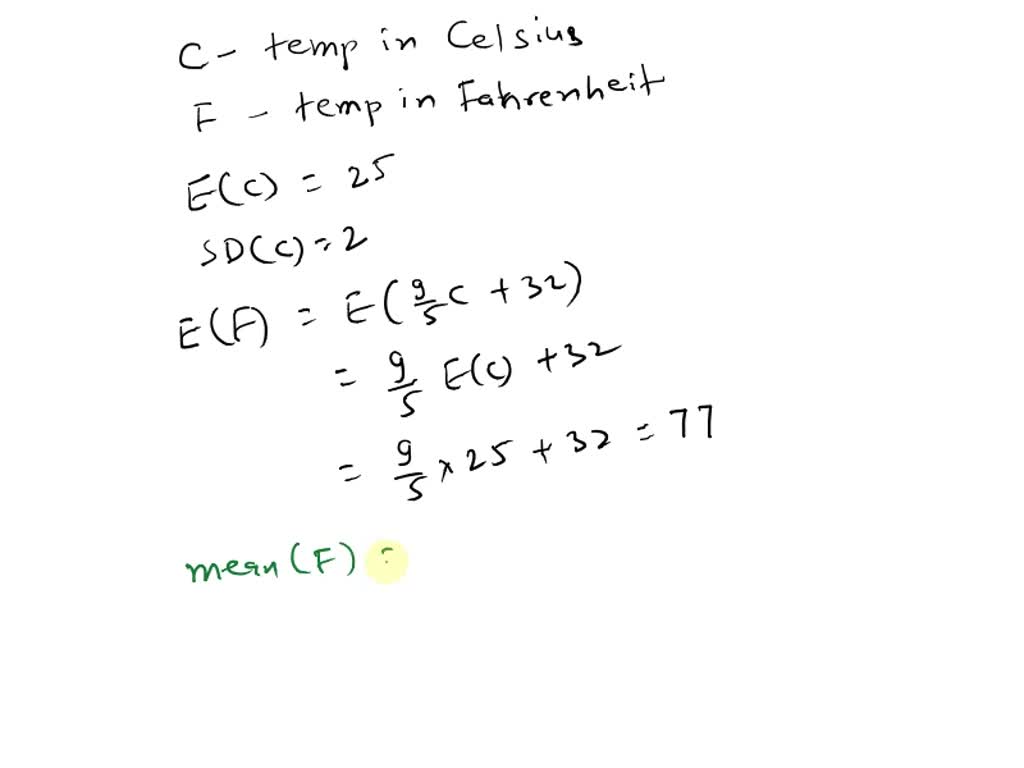 C - temp in Celsius
F - temp in Fahrenheit
E(C) = 25
SD(C) = 2
E(F) = E(9/5 C + 32)
= 9/5 E(C) + 32
= 9/5 × 25 + 32 = 77
mean(F) =